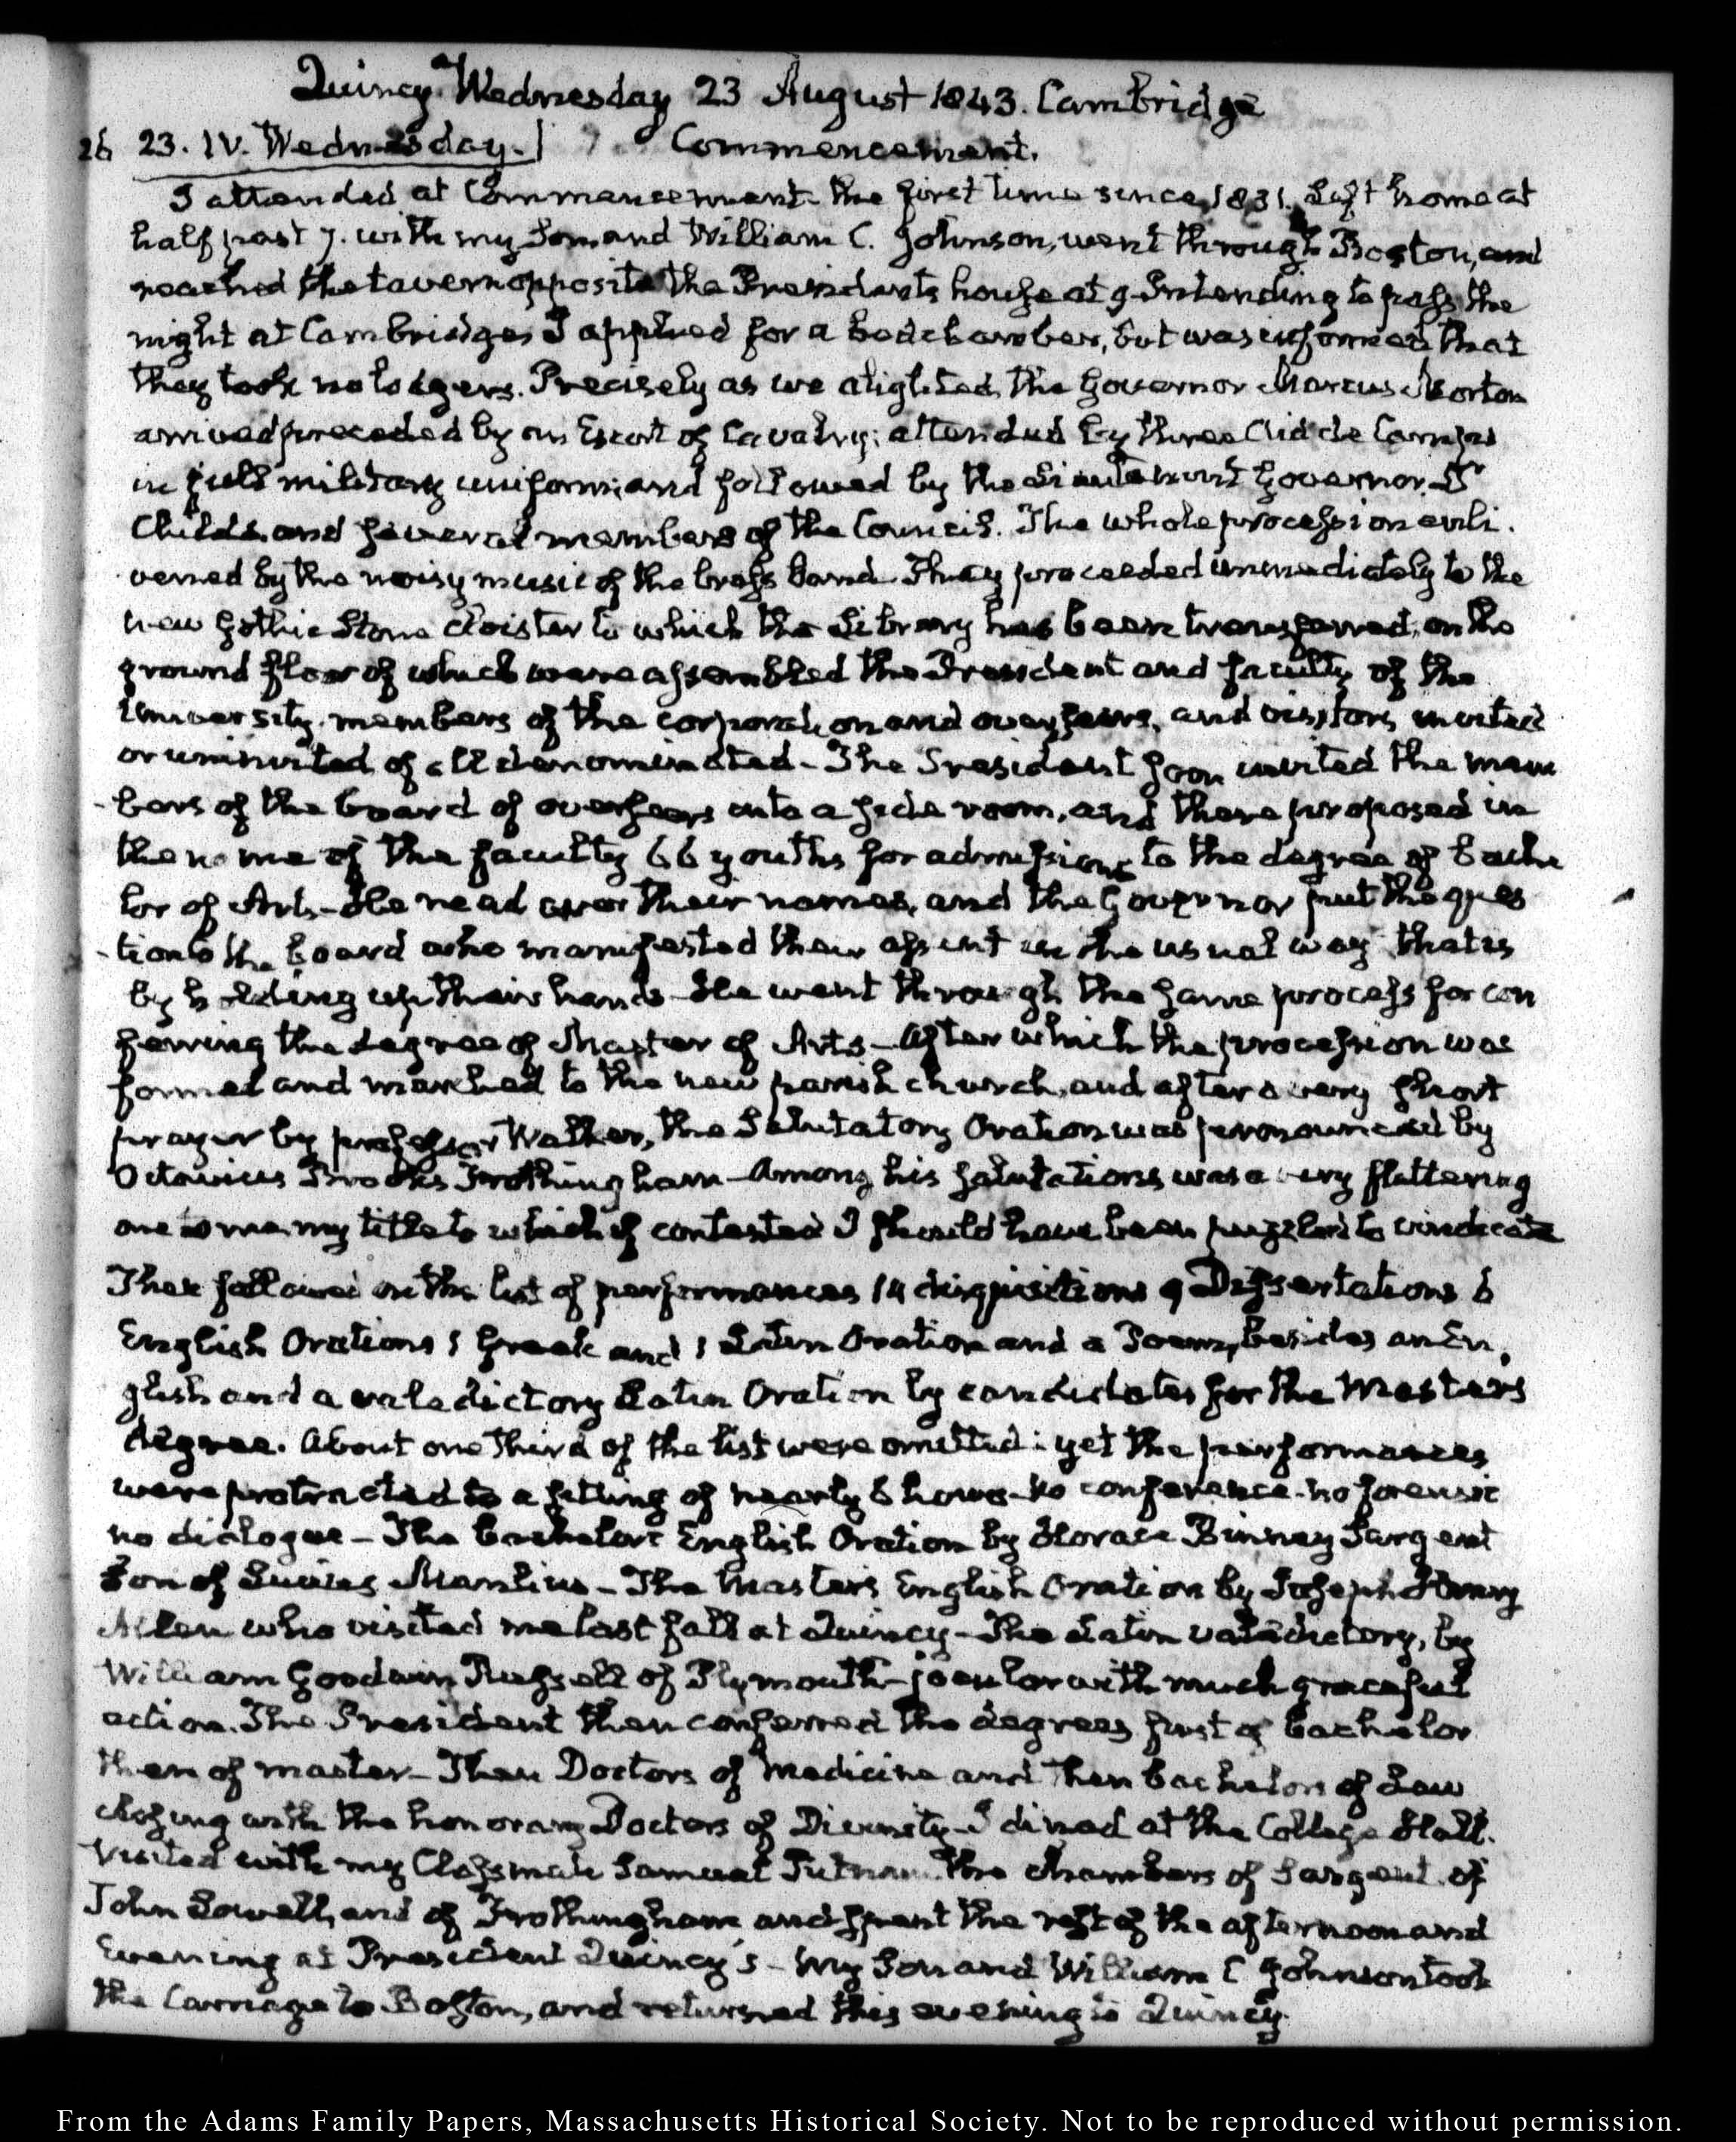 Quincy Wednesday 23 August 1843. Cambridge
26 23. IV. Wednesday. Commencement.
I attended at Commencement the first time since 1831. Left home at
half past 7. with my Son and William C. Johnson, went through Boston, and
reached the tavern opposite the Presidents house at 9. Intending to pass the
night at Cambridge, I applied for a bedchamber, but was informed that
they took no lodgers. Precisely as we alighted, the Governor Marcus Morton
arrived preceded by an Escort of Cavalry; attended by three Aid de Camps
in full military uniform; and followed by the Lieutenant Governor. Dr
Childs, and several members of the Council. The whole procession enli-
vened by the noisy music of the brass band. They proceeded immediately to the
new Gothic Stone cloister to which the Library has been transferred, on the
ground floor of which were assembled the President and faculty of the
University, members of the corporation and overseers, and visitors, invited
or uninvited of all denominated - The President soon invited the mem
-bers of the board of overseers into a side room, and there proposed in
the name of the faculty 66 youths for admission to the degree of bache
lor of Arts - He read over their names, and the Governor put the ques
-tion to the board who manifested their assent in the usual way that is
by holding up their hands - He went through the same process for con
ferring the degree of Master of Arts - After which the procession was
formed and marched to the new parish church, and after a very short
prayer by professor Walker, the Salutatory Oration was pronounced by
Octavius Brooks Frothingham - Among his salutations was a very flattering
one to me, my title to which if contested I should have been puzzled to vindicate
Then followed on the list of performances 14 disquisitions 9 Dissertations 6
English Orations 1 Greek and 1 Latin Oration and a Poem, besides an En-
glish and a valedictory Latin Oration by candidates for the Masters
degree. About one third of the list were omitted: yet the performances
were protracted to a sitting of nearly 6 hours - no conference - no forensic
no dialogue - The bachelors English Oration by Horace Binney Sargent
Son of Lucius Manlius - The Masters English Oration by Joseph Henry
Allen who visited me last fall at Quincy - The Latin valedictory, by
William Goodwin Russell of Plymouth - jocular with much graceful
action. The President then conferred the degrees first of bachelor
then of master - Then Doctors of Medicine and then bachelors of Law
closing with the honorary Doctors of Divinity - I dined at the College Hall.
Visited with my Classmate Samuel Putnam the chambers of Sargent, of
John Lowell, and of Frothingham, and spent the rest of the afternoon and
Evening at President Quincy's - My Son and William C Johnson took
the Carriage to Boston, and returned this evening to Quincy.
From the Adams Family Papers, Massachusetts Historical Society. Not to be reproduced without permission.